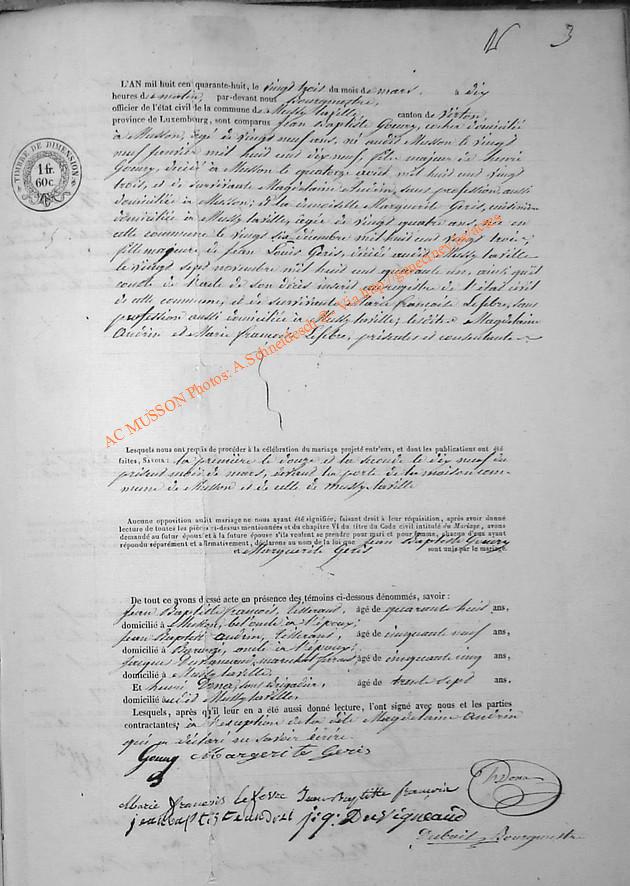 3
L'AN mil huit cent quarante-huit, le vingt trois du mois de mars, à dix
heures de matin, par-devant nous Bourgmestre,
officier de l'état civil de la commune de Mussy laville, canton de Virton,
province de Luxembourg, sont comparus Jean Baptiste Goury, domicilié
à Musson, âgé de vingt neuf ans, né audit Musson le vingt
neuf janvier mil huit cent dix neuf, fils majeur de henri
Goury, décédé à Musson le quatorze avril mil huit cent vingt
trois, et de survivante Magdelaine Audrin, sans profession, aussi
domiciliée à Musson; et la demoiselle Marguerite Geris,
domiciliée à Mussy laville, âgée de vingt quatre ans, née en
cette commune le vingt six décembre mil huit cent vingt trois,
fille majeure de Jean Louis Geris, décédé audit Mussy laville
le vingt sept novembre mil huit cent quarante un, ainsi qu'il
conste de l'acte de son décès inscrit au registre de l'état civil
de cette commune, et de survivante Marie françoise Lefebre, sans
profession aussi domiciliée à Mussy laville; lesdites Magdelaine
Audrin et Marie françoise Lefebre, présentes et consentantes
TIMBRE DE DIMENSION
1 fr.
60 c.
AC MUSSON Photos: A.Schneidesch ©. Via http://geneerney.be/actes
Lesquels nous ont requis de procéder à la célébration du mariage projeté entr'eux, et dont les publications ont été
faites, SAVOIR: la première le douze et la seconde le dix neuf du
présent mois de mars, devant la porte de la maison com-
mune de Musson et de celle de Mussy laville
Aucune opposition audit mariage ne nous ayant été signifiée, faisant droit à leur réquisition, après avoir donné
lecture de toutes les pièces ci-dessus mentionnées et du chapitre VI du titre du Code civil intitulé du Mariage, avons
demandé au futur époux et à la future épouse s'ils veulent se prendre pour mari et pour femme, chacun d'eux ayant
répondu séparément et affirmativement, déclarons au nom de la loi que Jean Baptiste Goury
et Marguerite Geris sont unis par le mariage.
De tout ce avons dressé acte en présence des témoins ci-dessous dénommés, savoir:
Jean Baptiste francois, âgé de quarante huit ans,
domicilié à Musson, bel oncle à l'époux;
Jean Baptiste Audrin, âgé de cinquante neuf ans,
domicilié à Baranzy, oncle à l'époux;
Jacques Duvigneaud, maréchal ferrant âgé de cinquante cinq ans,
domicilié à Mussy laville,
Et henri Dona, sous brigadier, âgé de trente sept ans,
domicilié audit Mussy laville,
Lesquels, après qu'il leur en a été aussi donné lecture, l'ont signé avec nous et les parties
contractantes, à l'exception de la dite Magdelaine Audrin
qui a déclaré ne savoir écrire.
Goury Margerite Geris
HDona
Marie francois lefebre Jean Baptiste françois
jean baptiste audrin j.q. Duvigneaud
Dubois, Bourgmestre